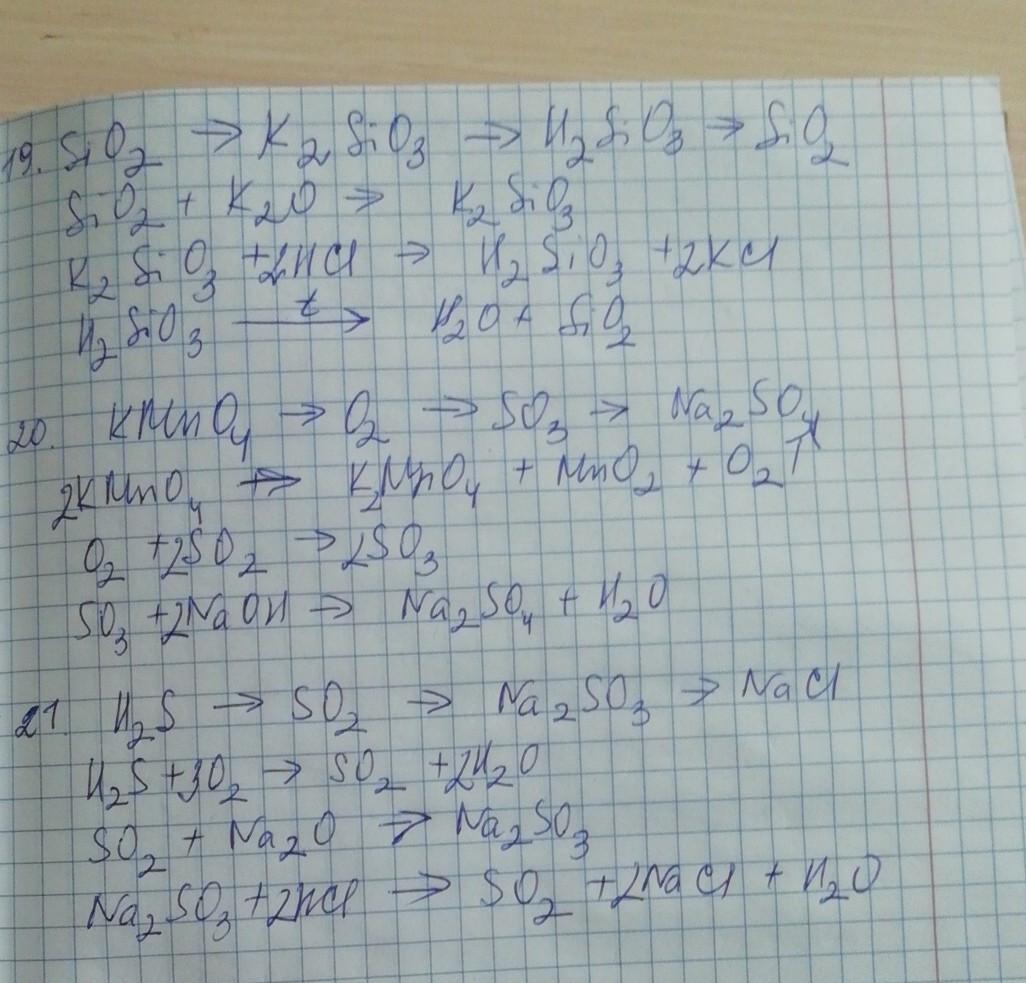 19. SiO₂ → K₂SiO₃ → H₂SiO₃ → SiO₂
SiO₂ + K₂O → K₂SiO₃
K₂SiO₃ + 2HCl → H₂SiO₃ + 2KCl
H₂SiO₃ —t→ H₂O + SiO₂
20. KMnO₄ → O₂ → SO₃ → Na₂SO₄
2KMnO₄ → K₂MnO₄ + MnO₂ + O₂↑
O₂ + 2SO₂ → 2SO₃
SO₃ + 2NaOH → Na₂SO₄ + H₂O
21. H₂S → SO₂ → Na₂SO₃ → NaCl
H₂S + 3O₂ → SO₂ + 2H₂O
SO₂ + Na₂O → Na₂SO₃
Na₂SO₃ + 2HCl → SO₂ + 2NaCl + H₂O